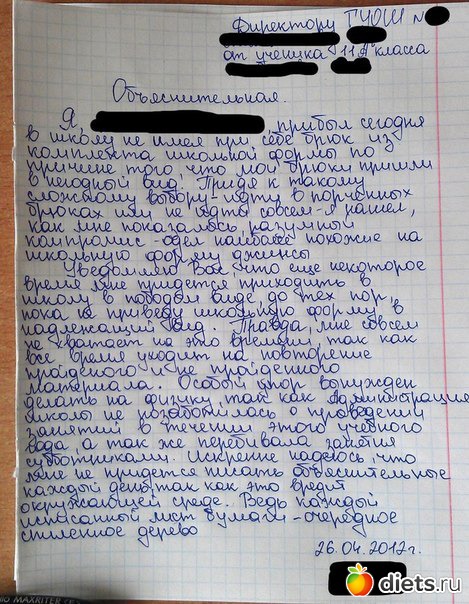 Директору ГУОШ №
от ученика 11 "А" класса
Объяснительная.
Я, прибыл сегодня
в школу не имея при себе брюк из
комплекта школьной формы по
причине того, что мои брюки пришли
в негодный вид. Придя к такому
сложному выбору - идти в порченных
брюках или не идти совсем - я нашел,
как мне показалось, разумный
компромис - одел наиболее похожие на
школьную форму джинсы
Уведомляю Вас, что еще некоторое
время мне придется приходить в
школу в подобом виде, до тех пор,
пока не приведу школьную форму в
надлежащий вид. Правда, мне совсем
не хватает на это времени, так как
все время уходит на повторение
пройденого и не пройденного
материала. Особый упор вынужден
делать на физику, так как Администрация
школы не позаботилась о проведении
занятий в течении этого учебного
года, а так же перебивала занятия
субботниками. Искренне надеюсь, что
мне не придется писать объяснительные
каждый день, так как это вредит
окружающей среде. Ведь каждый
исписанный лист бумаги - очередное
спиленное дерево
26.04.2012г.
ИО MAXRITER
diets.ru